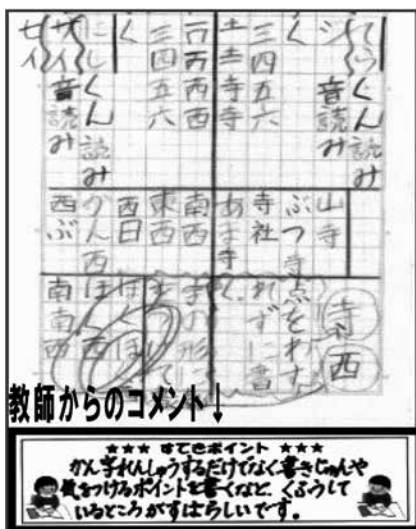 てら くん読み
シ 音読み
く
三四五六
土寺寺
一丆丙西西
三四五六
く
にし くん読み
サイ 音読み
セイ
山寺
ぶつ寺
寺社
あま寺
南西
東西
西日
かん西
西ぶ
寺
西
点をわす
れずに書
く。
の形に
南南西
教師からのコメント↓
★★★ すてきポイント ★★★
かん字れんしゅうするだけでなく、書きじゅんや
気をつけるポイントを書くなど、くふうして
いるところがすばらしいです。